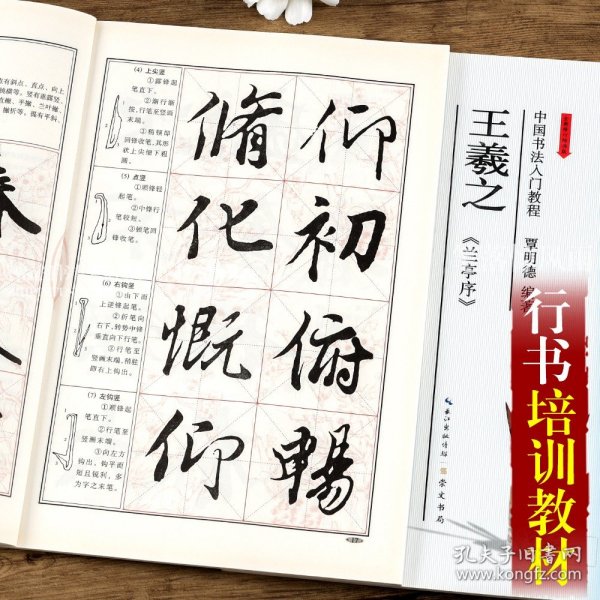 (4) 上尖竖
①露锋起
笔直下。
②渐行渐
按,行笔至竖画
末端。
③稍顿即
回锋收笔,其形
状上尖细下艰
圆。
(5) 点竖
①顺锋轻
起笔。
②中锋行
笔较短。
③顿笔回
锋收笔。
(6) 右钩竖
①由下而
上逆锋起笔。
②折笔向
右下,转势中锋
垂直向下行笔。
③行笔至
竖画末端,稍驻
即右上钩出。
(7) 左钩竖
①顺锋起
笔直下。
②行笔至
竖画末端。
③向左方
钩出,钩平而
短且锐利,多
为字之末笔。
脩 仰
化 初
慨 俯
仰 暢
17
中国书法入门教程
王羲之
《兰亭序》
覃明德 编著
长江出版传媒
崇文书局
行书培训教材
孔夫子旧书网
www.kongfz.com